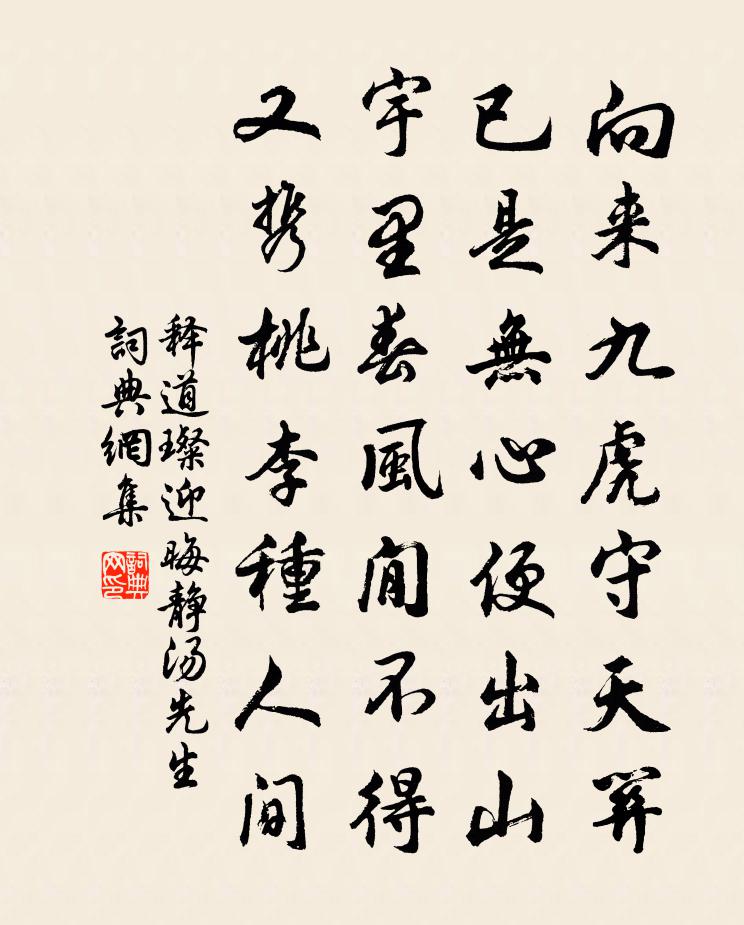 向来九虎守天關
已是無心便出山
宇里春風閒不得
又携桃李種人間
释道璨迎晦静汤先生
詞典網集
詞典
网印